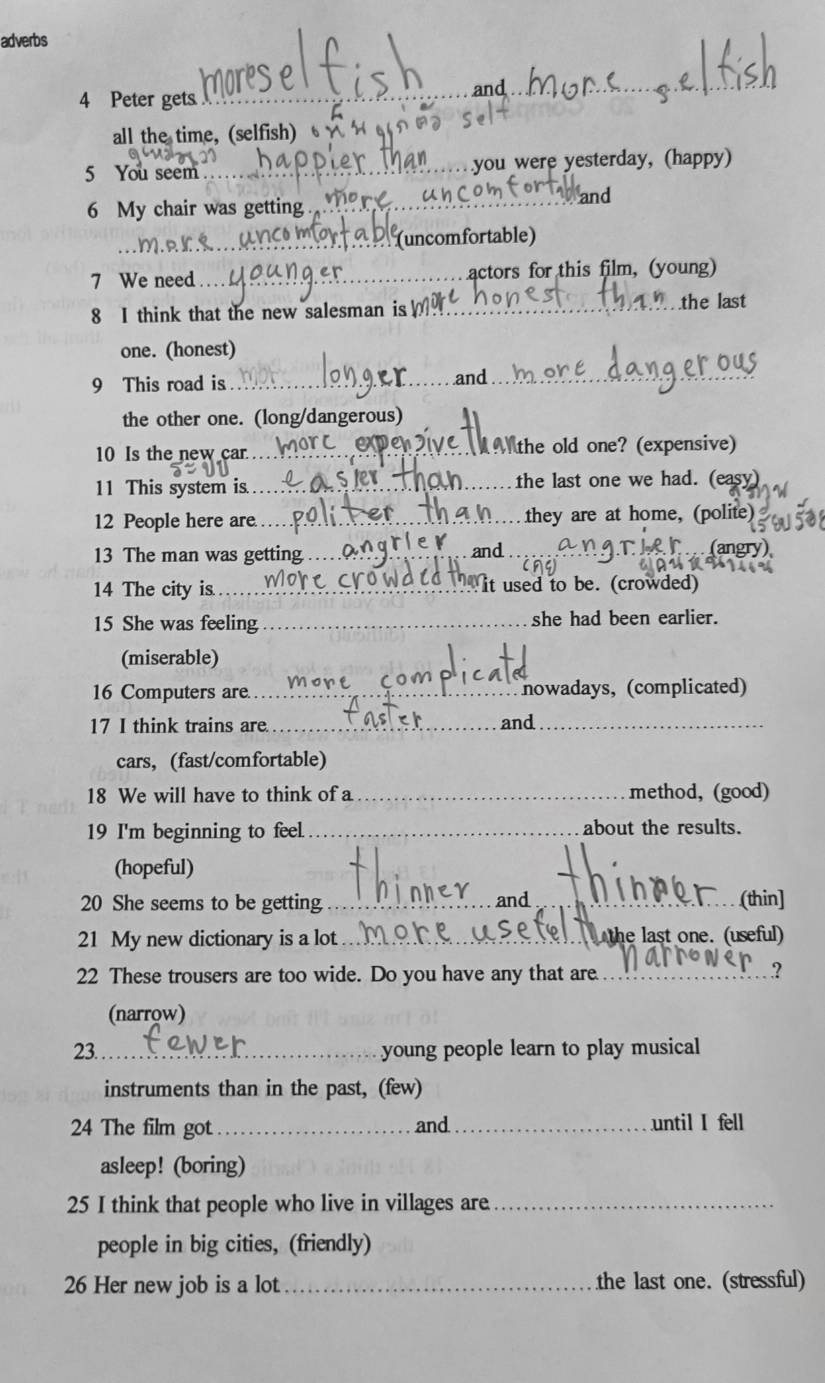 adverbs
4 Peter gets more selfish and more selfish
all the time, (selfish) self
5 You seem happier than you were yesterday, (happy)
6 My chair was getting more uncomfortable and
more uncomfortable (uncomfortable)
7 We need younger actors for this film, (young)
8 I think that the new salesman is more honest than the last
one. (honest)
9 This road is longer and more dangerous
the other one. (long/dangerous)
10 Is the new car more expensive than the old one? (expensive)
11 This system is easier than the last one we had. (easy)
12 People here are politer than they are at home, (polite)
13 The man was getting angrier and angrier (angry)
14 The city is more crowded than it used to be. (crowded)
15 She was feeling she had been earlier.
(miserable)
16 Computers are more complicatd nowadays, (complicated)
17 I think trains are faster and
cars, (fast/comfortable)
18 We will have to think of a method, (good)
19 I'm beginning to feel about the results.
(hopeful)
20 She seems to be getting thinner and thinner (thin]
21 My new dictionary is a lot more usefel the last one. (useful)
22 These trousers are too wide. Do you have any that are narrower ?
(narrow)
23 fewer young people learn to play musical
instruments than in the past, (few)
24 The film got and until I fell
asleep! (boring)
25 I think that people who live in villages are
people in big cities, (friendly)
26 Her new job is a lot the last one. (stressful)